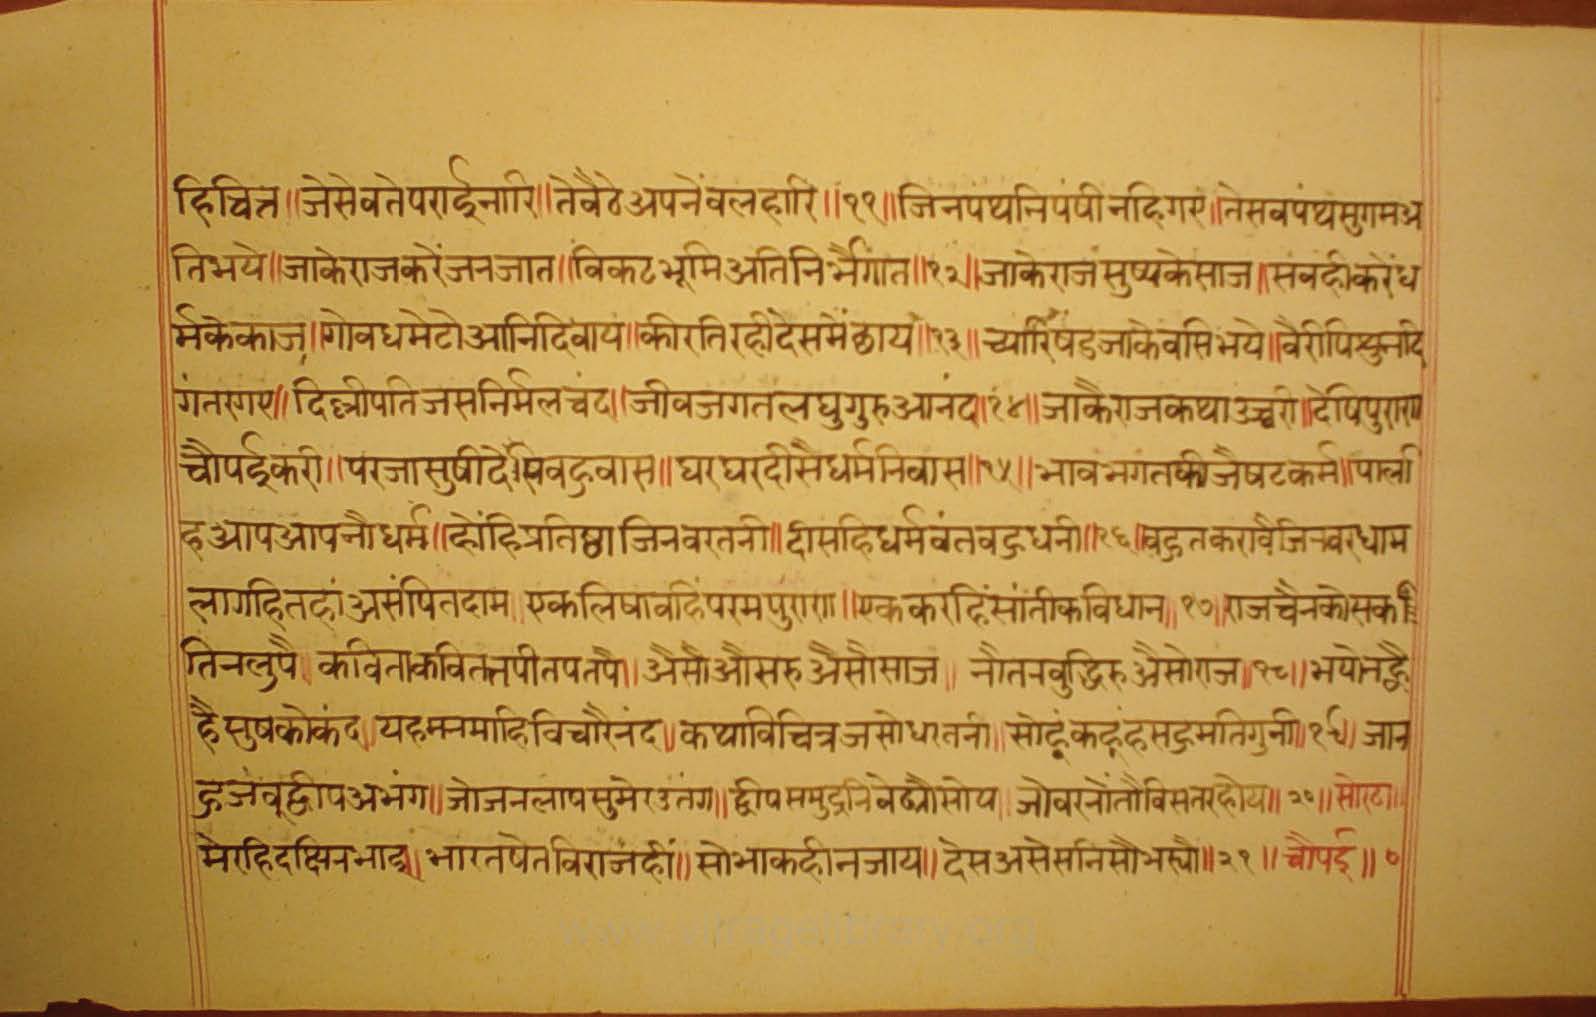 हिचित्त॥जेसेवतेपराईनारि॥तेवैठेअपनेंवलहारि॥११॥जिनपंथनिपंषीनहिगए॥तेसवपंथसुगमअ
तिभये॥जाकेराजकरेंजनजात॥विकटभूमिअतिनिर्भैगात॥१२॥जाकेराजसुष्यकेसाज॥सवहीकरेंध
र्मकेकाज॥गोवधमेटोआनिदिवाय॥कीरतिरहीदेसमेंछाय॥१३॥च्यारिषंडजाकेवसिभये॥वैरीपिसुनदि
गंतरगए॥दिल्लीपतिजसनिर्मलचंद॥जीवजगतलघुगुरुआनंद॥१४॥जाकैराजकथाउच्चरी॥देषिपुराण
चौपईकरी॥परजासुषीदेषिवहुवास॥घरघरदीसैधर्मनिवास॥१५॥भावभगतकीजैषटकर्म॥पाली
हआपआपनौधर्म॥होंहिप्रतिष्ठाजिनवरतनी॥दीसहिधर्मवंतवहुधनी॥१६॥वहुतकरावैजिनवरधाम
लागहितहांअसंषितदाम॥एकलिषावहिंपरमपुराण॥एककरहिंसांतीकविधान॥१७॥राजचैनकोसक
तिनलुपै॥कविताकवितत्तपीतपतपै॥अैसौऔसरुअैसौसाज॥नौतनवुद्धिरुअैसोराज॥१८॥भयोन
हैसुषकोकंद॥यहमनमाहिविचारैनंद॥कथाविचित्रजसोधरतनी॥सोहूंकहूंहसहुमतिगुनी॥१९॥जान
हुजंवूद्वीपअभंग॥जोजनलाषसुमेरउतंग॥द्वीपसमुद्रनिवेढ्यौसोय॥जोवरनोंतौविसतरहोय॥२०॥सोरठा॥
मेरहिदक्षिनभाइ॥भारतषेतविराजहीं॥सोभाकहीनजाय॥देसअसेसनिसौभस्यौ॥२१॥चौपई॥०
www.vitragelibrary.org